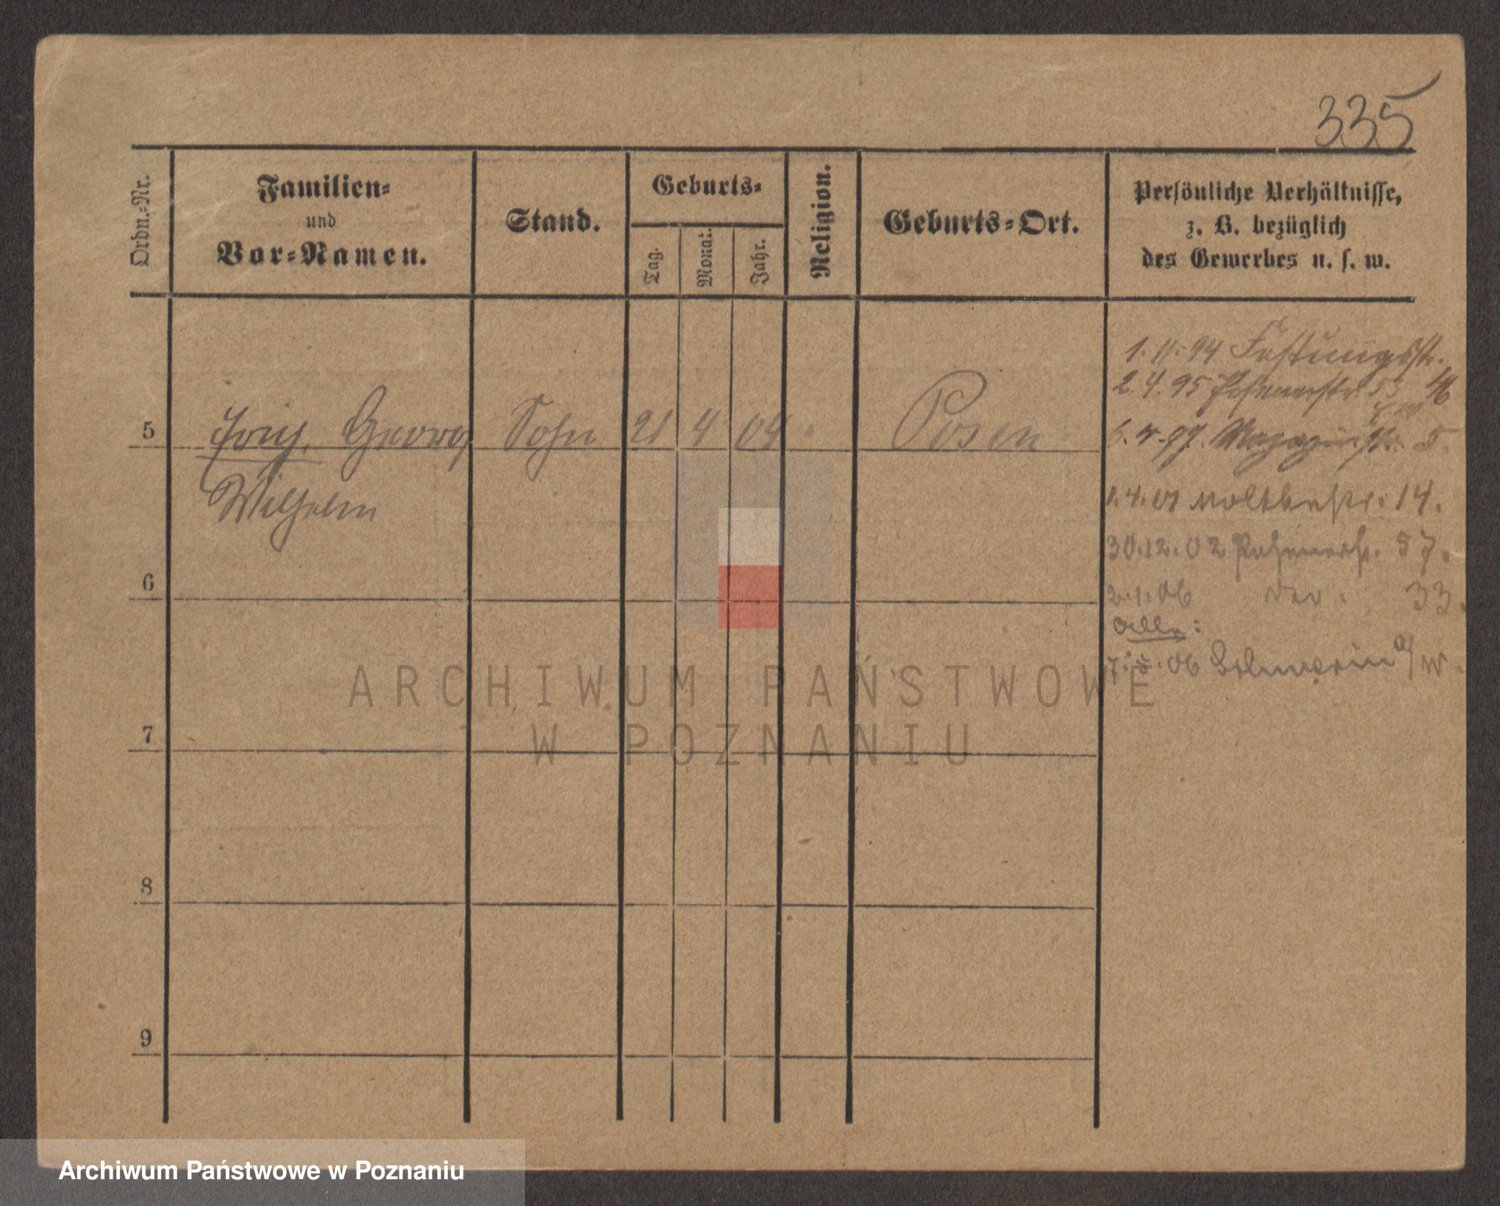 335
Ordn.-Nr.
Familien-
und
Vor-Namen.
Stand.
Geburts-
Tag.
Monat.
Jahr.
Religion.
Geburts-Ort.
Persönliche Verhältnisse,
z. B. bezüglich
des Gewerbes u. s. w.
1. 11. 94 Festungsstr.
2. 4. 95
5 Erich, Georg Sohn 21 4 04 Posen
Wilhelm
6. 4. 97. Magazinstr. 5.
1. 4. 01 Moltkestr. 14.
30. 12. 02 57.
6
2. 1. 06 33.
06 Schwerin a/W.
7
8
9
ARCHIWUM PAŃSTWOWE
W POZNANIU
Archiwum Państwowe w Poznaniu